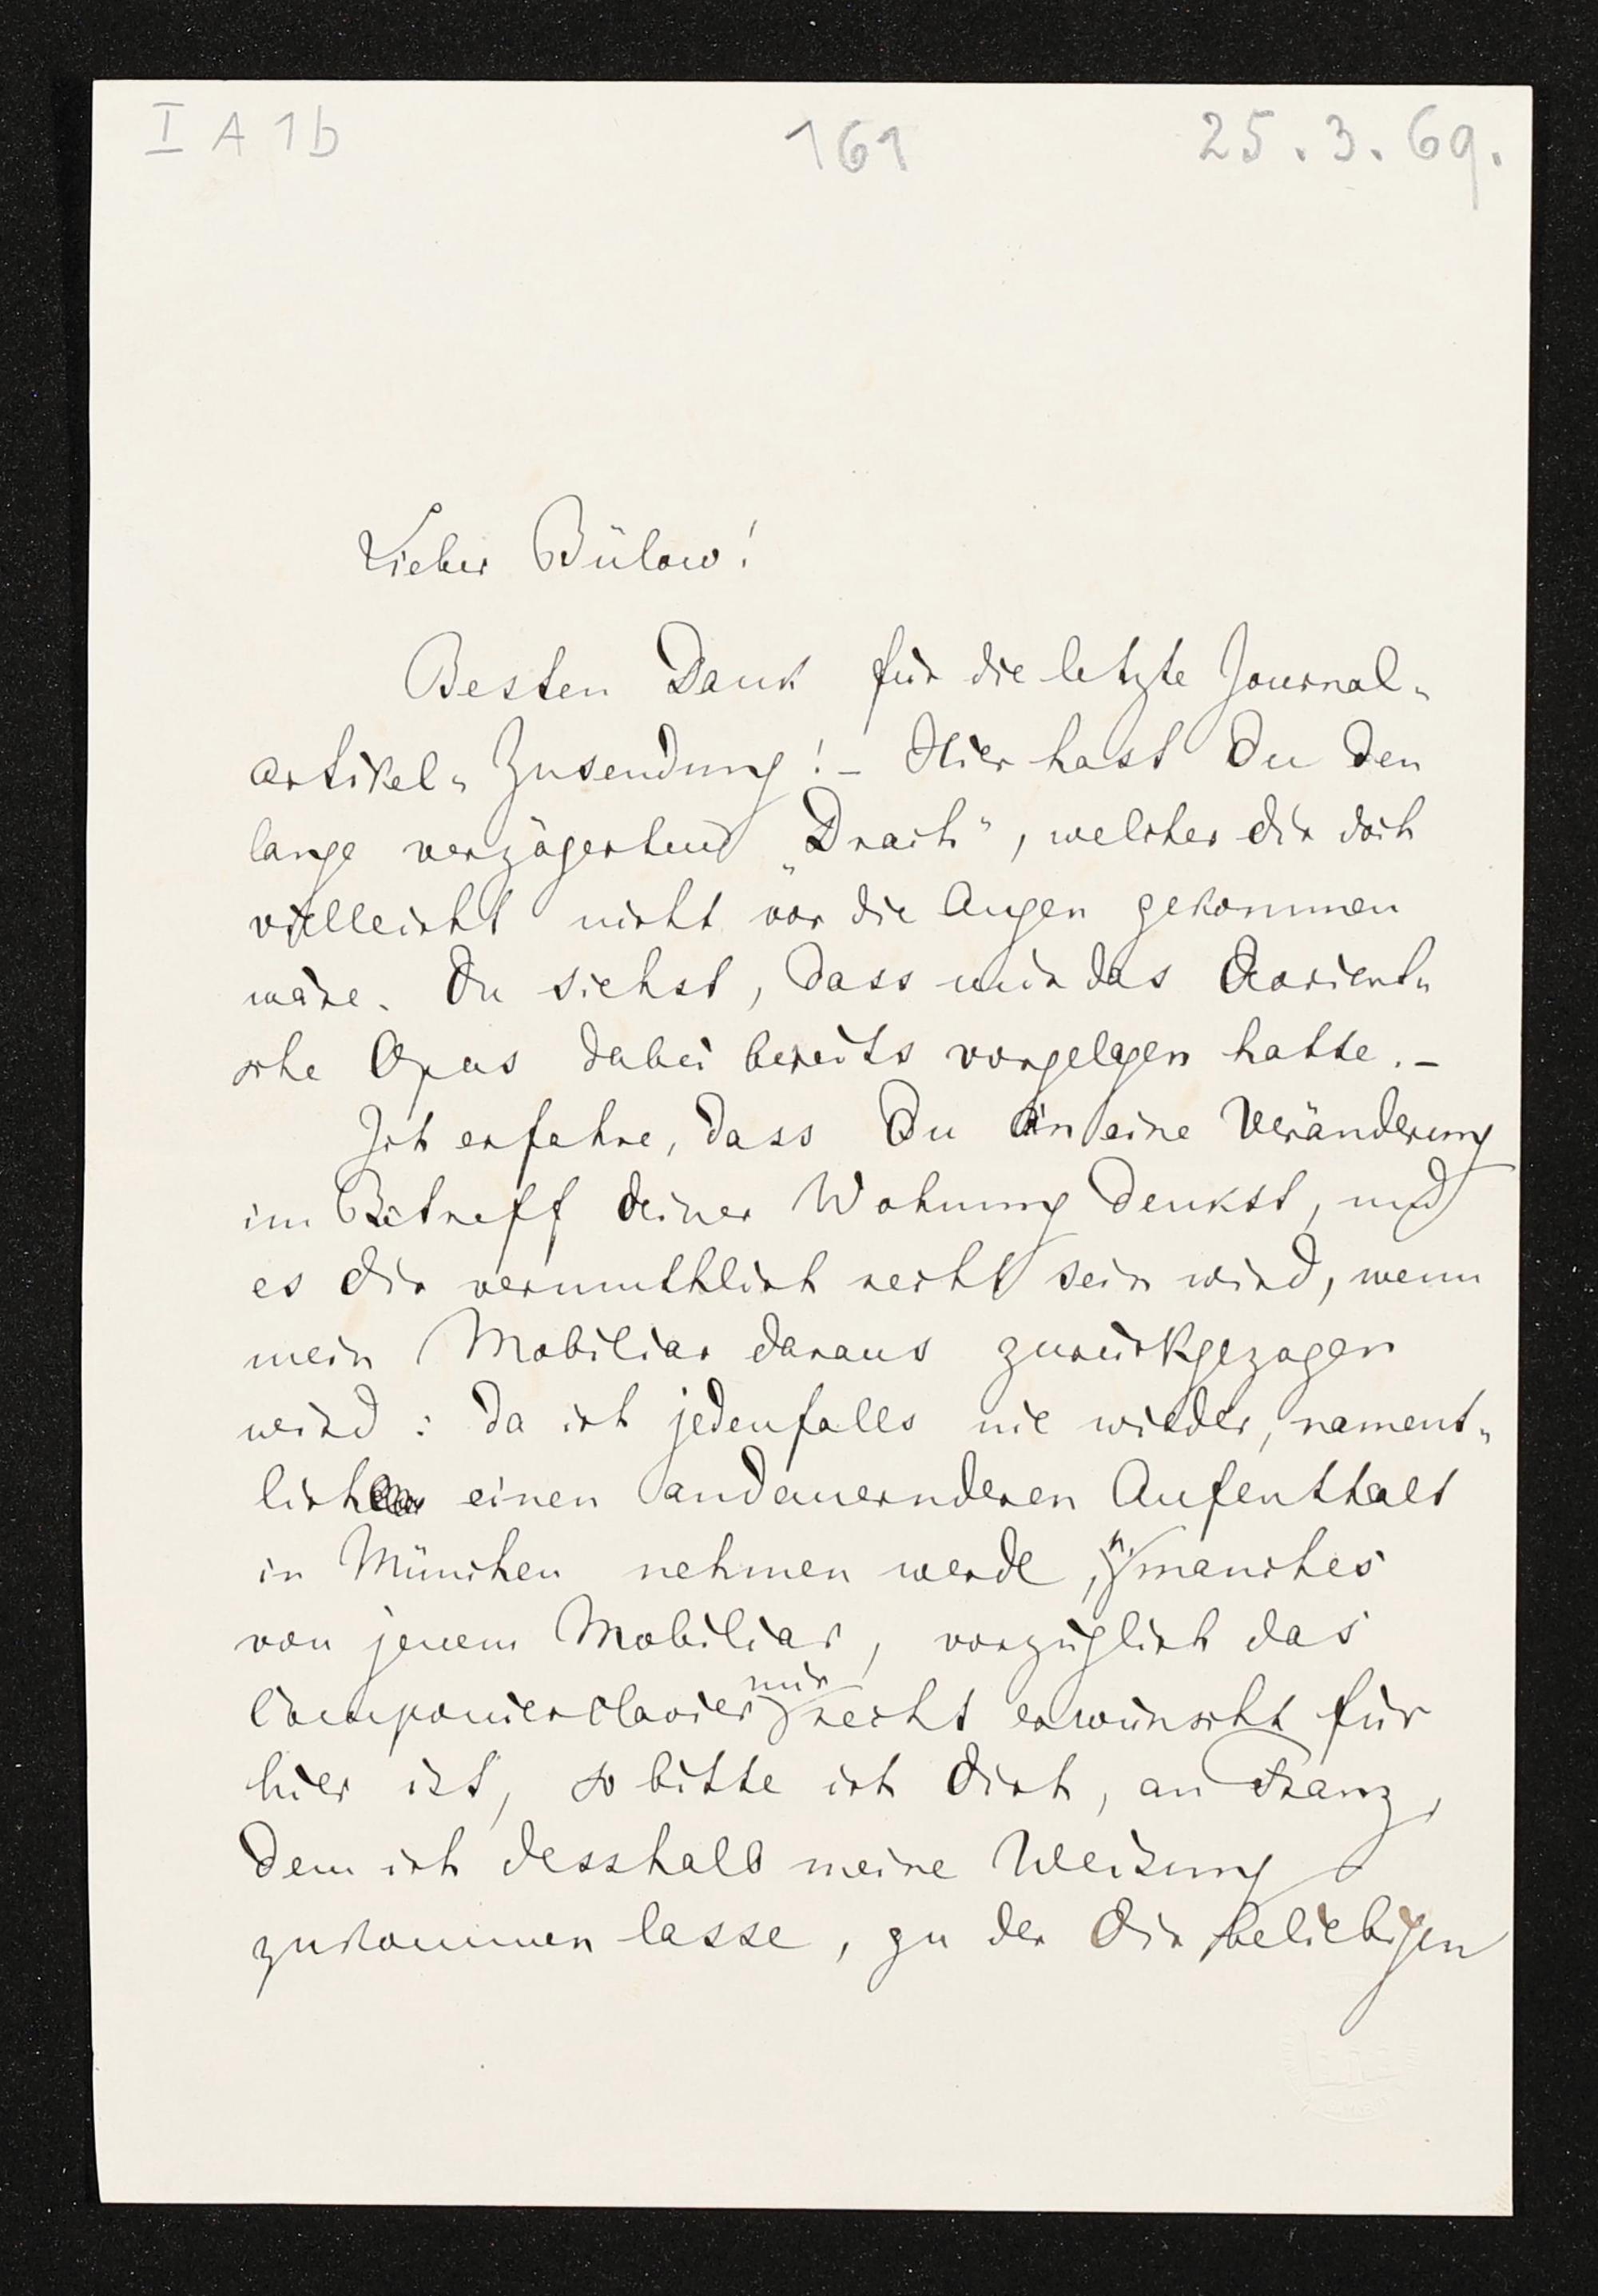 I A 1b 161 25.3.69.
Lieber Bülow!
Besten Dank für die letzte Journal-
artikel-Zusendung! – Hier hast Du den
lange verzögerten „Drach“, welcher Dir doch
vielleicht nicht vor die Augen gekommen
wäre. Du siehst, dass mir das
sche Opus dabei bereits vorgelegen hatte. –
Ich erfahre, dass Du an eine Veränderung
im Betreff deiner Wohnung denkst, und
es Dir vermuthlich recht sein wird, wenn
mein Mobiliar daraus zurückgezogen
wird: da ich jedenfalls nie wieder, nament-
lich einen andauernderen Aufenthalt
in München nehmen werde, u. manches
von jenem Mobiliar, vorzüglich das
Componierclavier mir recht erwünscht für
hier ist, so bitte ich Dich, an Franz,
dem ich desshalb meine Weisung
zukommen lasse, zu der Dir beliebigen